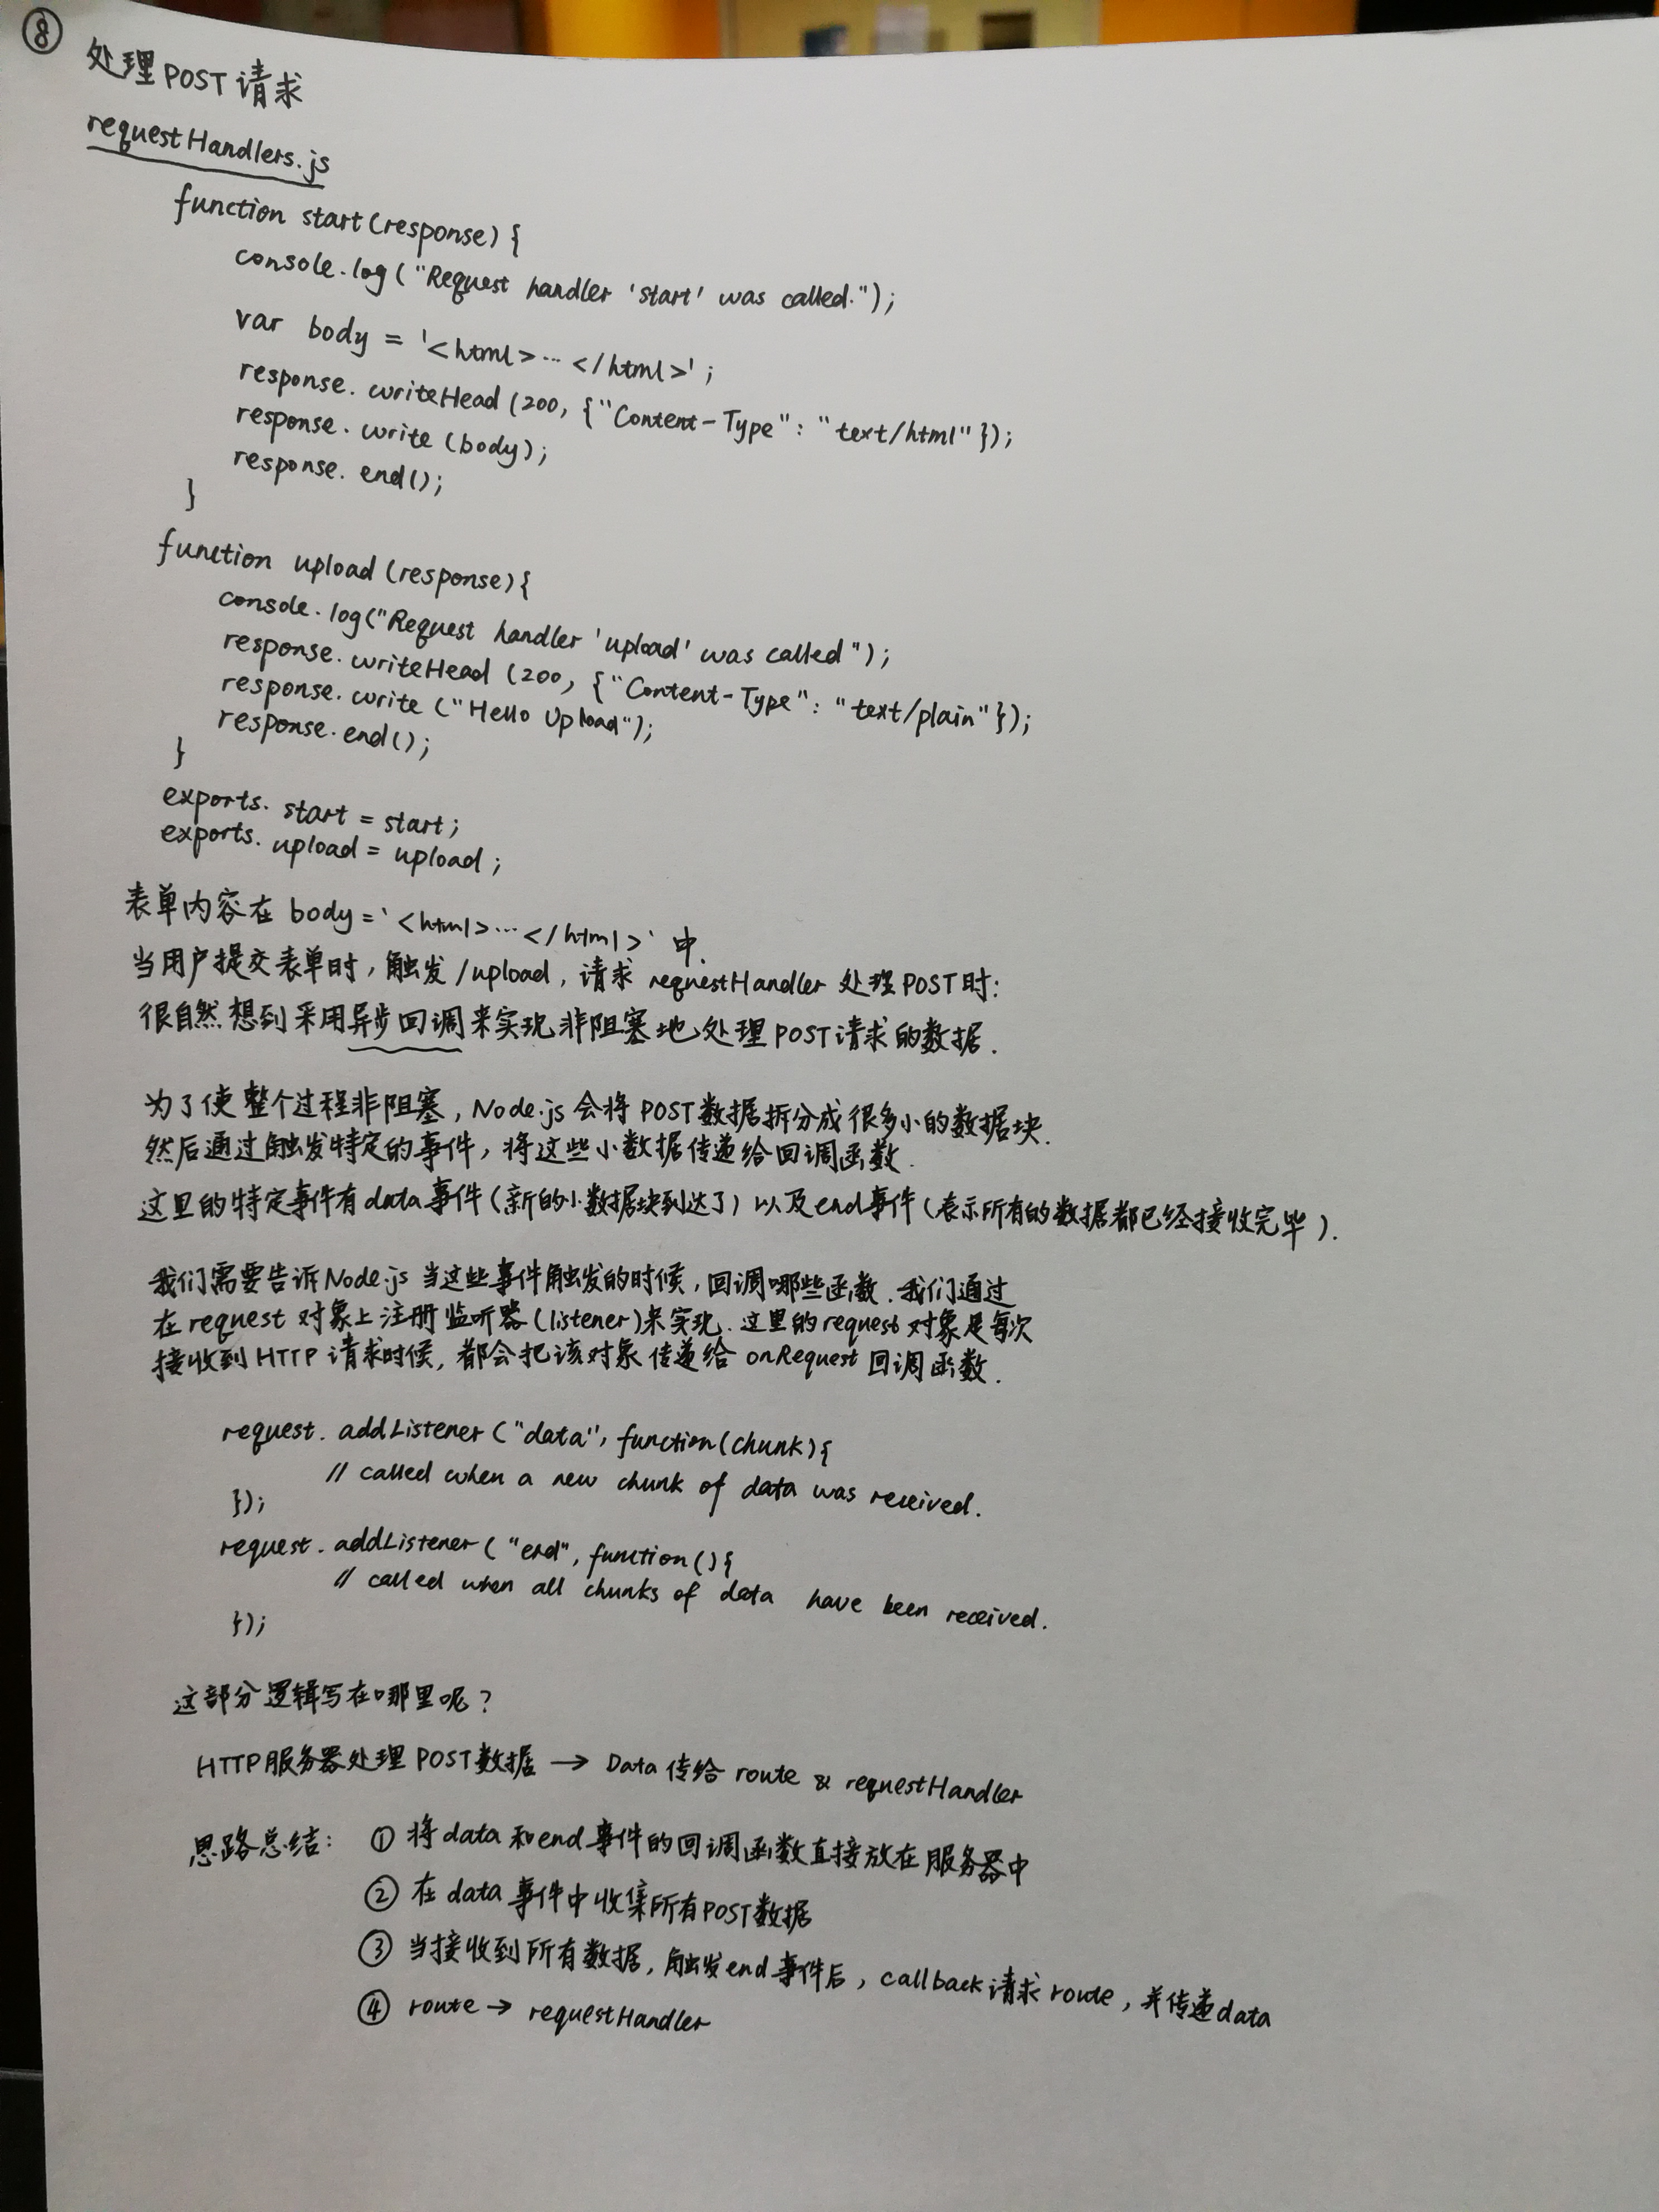 ⑧
处理POST请求
requestHandlers.js
function start(response){
console.log("Request handler 'start' was called.");
var body = '<html>...</html>';
response.writeHead(200, {"Content-Type": "text/html"});
response.write(body);
response.end();
}
function upload(response){
console.log("Request handler 'upload' was called");
response.writeHead(200, {"Content-Type": "text/plain"});
response.write("Hello Upload");
response.end();
}
exports.start = start;
exports.upload = upload;
表单内容在 body='<html>...</html>' 中.
当用户提交表单时, 触发/upload, 请求 requestHandler 处理POST时:
很自然想到采用异步回调来实现非阻塞地处理POST请求的数据.
为了使整个过程非阻塞, Node.js会将POST数据拆分成很多小的数据块.
然后通过触发特定的事件, 将这些小数据传递给回调函数.
这里的特定事件有data事件(新的小数据块到达了)以及end事件(表示所有的数据都已经接收完毕).
我们需要告诉Node.js当这些事件触发的时候, 回调哪些函数. 我们通过
在request对象上注册监听器(listener)来实现. 这里的request对象是每次
接收到HTTP请求时候, 都会把该对象传递给onRequest回调函数.
request.addListener("data", function(chunk){
// called when a new chunk of data was received.
});
request.addListener("end", function(){
// called when all chunks of data have been received.
});
这部分逻辑写在哪里呢?
HTTP服务器处理POST数据 → Data传给 route & requestHandler
思路总结: ① 将data和end事件的回调函数直接放在服务器中
② 在data事件中收集所有POST数据
③ 当接收到所有数据, 触发end事件后, callback请求route, 并传递data
④ route → requestHandler